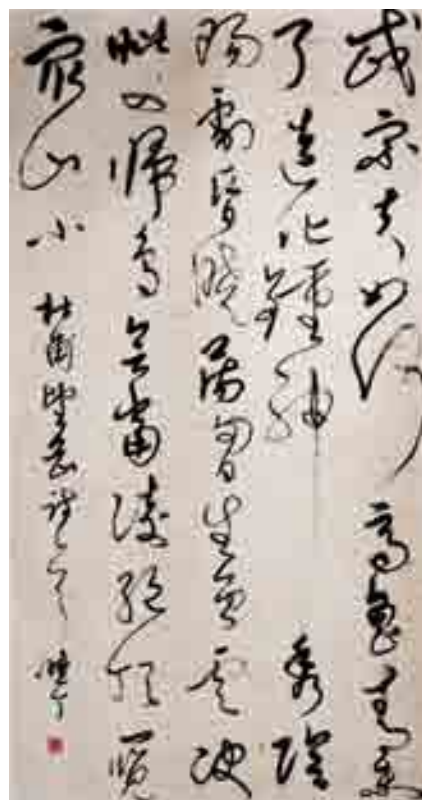 岱宗夫如何齊魯青未
了造化鍾神秀陰
陽割昏曉蕩胸生曾雲決
眥入歸鳥會當凌絕頂一覽
眾山小 杜甫望岳詩